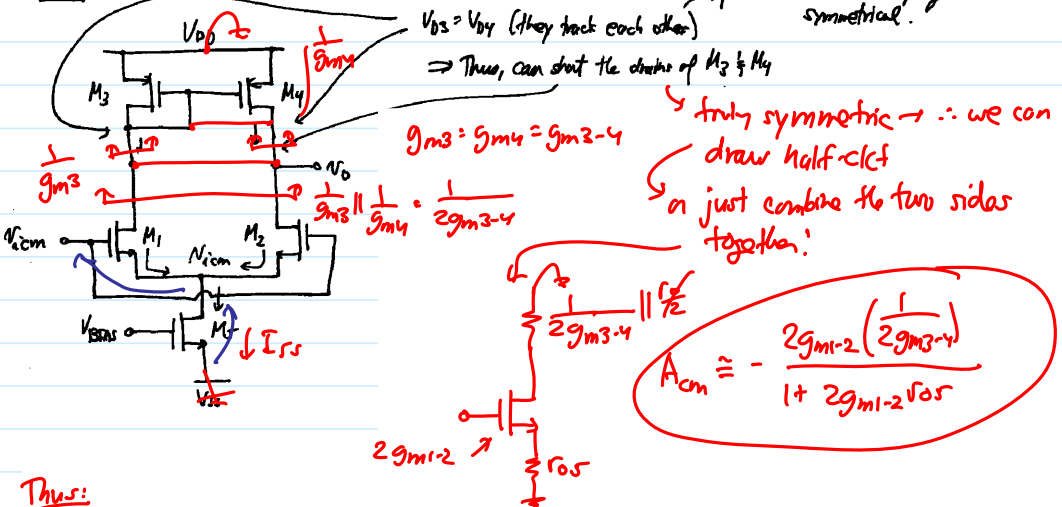 symmetrical!
V_D3 = V_D4 (they track each other)
⇒ Thus, can short the drains of M3 & M4
↳ truly symmetric → ∴ we can
draw half-ckt
or just combine the two sides
together!
V_DD
1/gm4
M3
M4
gm3 = gm4 = gm3-4
1/gm3
v_o
1/gm3 || 1/gm4 = 1/2gm3-4
v_icm
M1
M2
v_icm
V_BIAS
I_SS
V_SS
1/2gm3-4 || ro/2
2gm1-2
ro5
A_cm ≅ - 2gm1-2 (1/2gm3-4) / 1 + 2gm1-2 ro5
Thus: